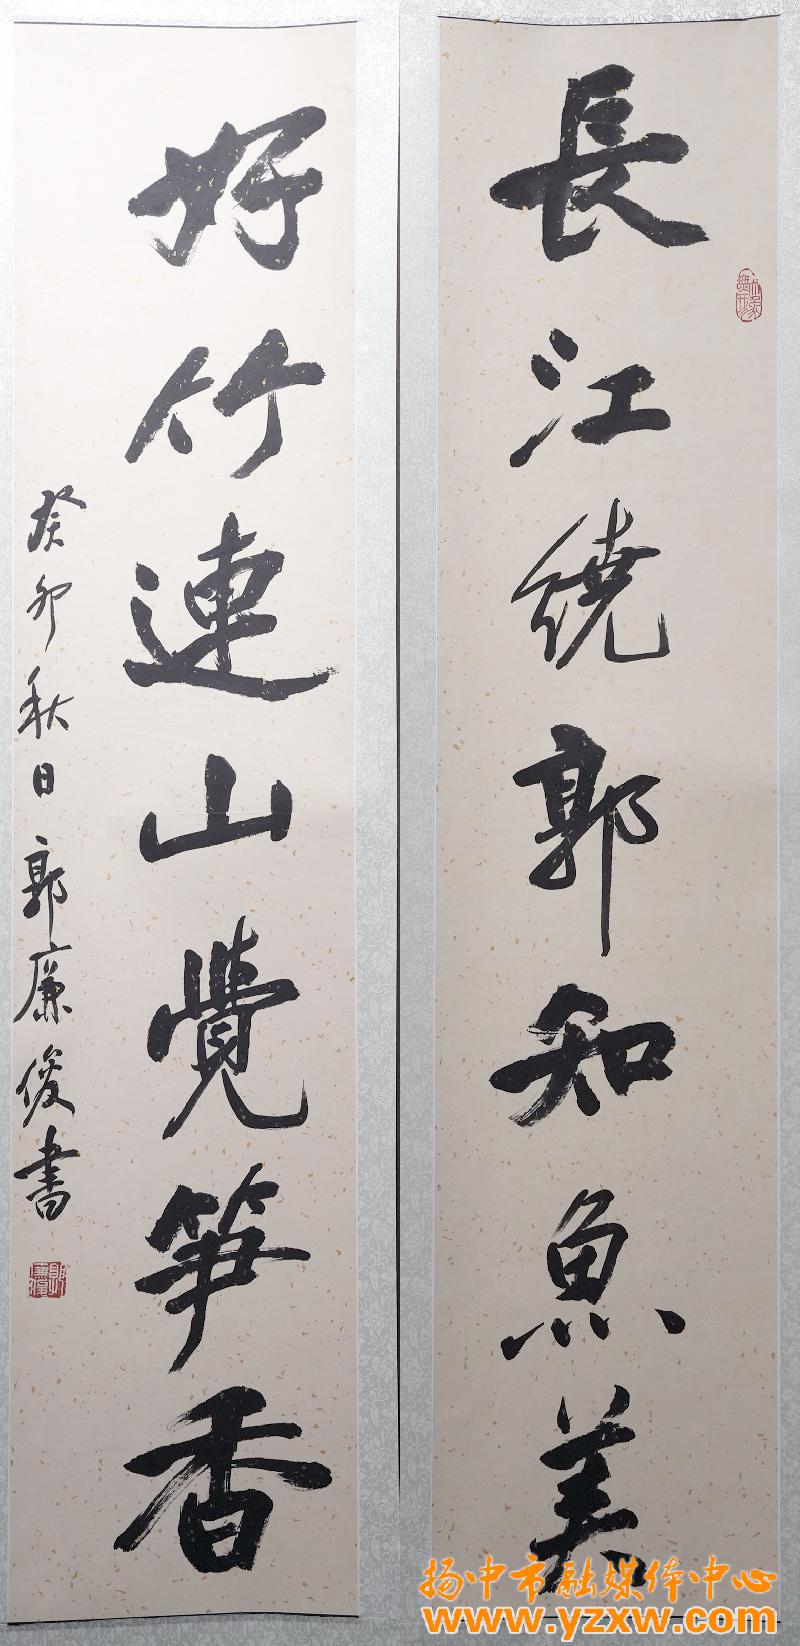 長江繞郭知魚美
好竹連山覺笋香
癸卯秋日郭廉俊書
扬中市融媒体中心
www.yzxw.com